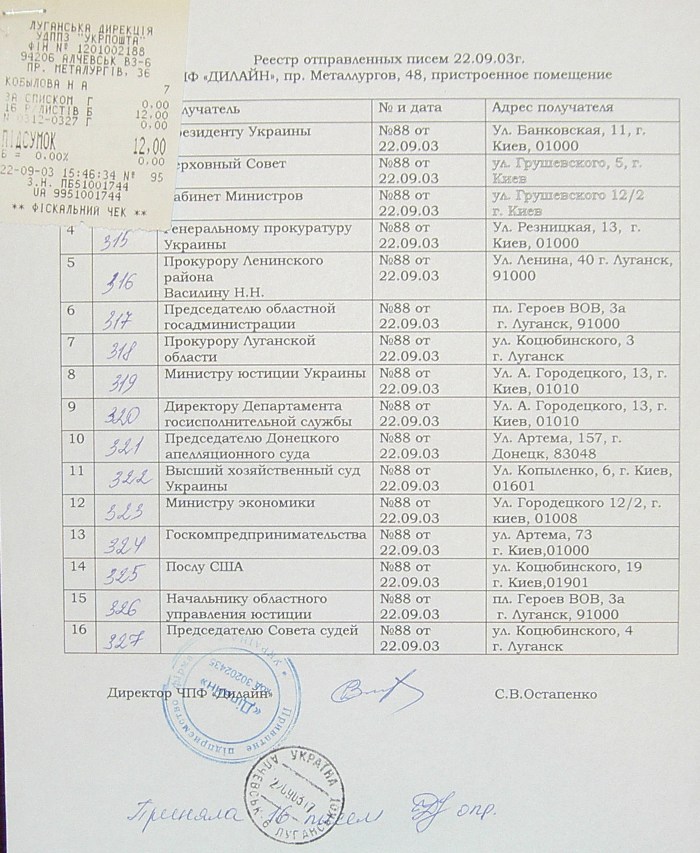 ЛУГАНСЬКА ДИРЕКЦІЯ
УДППЗ "УКРПОШТА"
ФІН № 1201002188
94206 АЛЧЕВСЬК ВЗ-6
ПР. МЕТАЛУРГІВ, 36
КОБЫЛОВА Н А 7
ЗА СПИСКОМ Г 0.00
16 Р/ЛИСТІВ Б 12.00
№ 0312-0327 Г 0.00
ПІДСУМОК 12.00
Б = 0.00% 0.00
22-09-03 15:46:34 № 95
З.Н. ПБ51001744
UA 9951001744
** ФІСКАЛЬНИЙ ЧЕК **
Реестр отправленных писем 22.09.03г.
ПФ «ДИЛАЙН», пр. Металлургов, 48, пристроенное помещение
олучатель № и дата Адрес получателя
резиденту Украины №88 от 22.09.03 Ул. Банковская, 11, г. Киев, 01000
ерховный Совет №88 от 22.09.03 ул. Грушевского, 5, г. Киев
абинет Министров №88 от 22.09.03 ул. Грушевского 12/2 г. Киев
4 315 Генеральному прокуратуру Украины №88 от 22.09.03 Ул. Резницкая, 13, г. Киев, 01000
5 316 Прокурору Ленинского района Василину Н.Н. №88 от 22.09.03 Ул. Ленина, 40 г. Луганск, 91000
6 317 Председателю областной госадминистрации №88 от 22.09.03 пл. Героев ВОВ, 3а г. Луганск, 91000
7 318 Прокурору Луганской области №88 от 22.09.03 ул. Коцюбинского, 3 г. Луганск
8 319 Министру юстиции Украины №88 от 22.09.03 Ул. А. Городецкого, 13, г. Киев, 01010
9 320 Директору Департамента госисполнительной службы №88 от 22.09.03 Ул. А. Городецкого, 13, г. Киев, 01010
10 321 Председателю Донецкого апелляционого суда №88 от 22.09.03 Ул. Артема, 157, г. Донецк, 83048
11 322 Высший хозяйственный суд Украины №88 от 22.09.03 Ул. Копыленко, 6, г. Киев, 01601
12 323 Министру экономики №88 от 22.09.03 Ул. Городецкого 12/2, г. киев, 01008
13 324 Госкомпредпринимательства №88 от 22.09.03 ул. Артема, 73 г. Киев,01000
14 325 Послу США №88 от 22.09.03 ул. Коцюбинского, 19 г. Киев,01901
15 326 Начальнику областного управления юстиции №88 от 22.09.03 пл. Героев ВОВ, 3а г. Луганск, 91000
16 327 Председателю Совета судей №88 от 22.09.03 ул. Коцюбинского, 4 г. Луганск
Директор ЧПФ "Дилайн" С.В.Остапенко
Приватне підприємство
«Ділайн»
код 30202435
УКРАЇНА
АЛЧЕВСЬК-6 ЛУГАНСЬКОЇ
Приняла 16 писем опр.